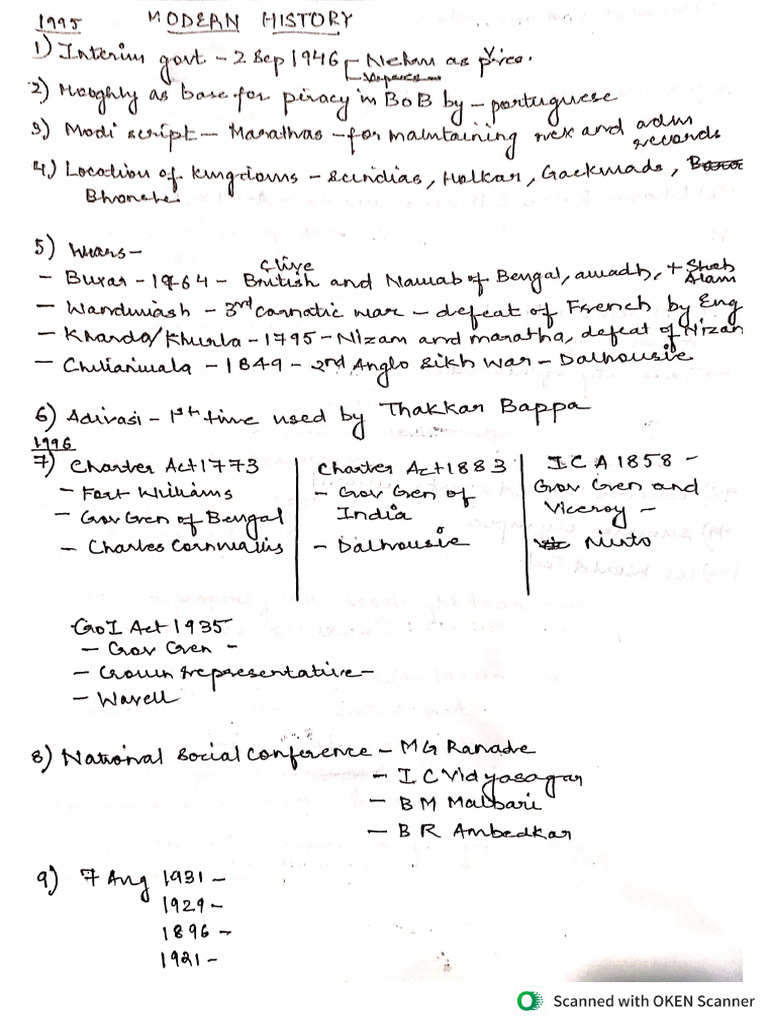 1995 MODERN HISTORY
1) Interim govt - 2 Sep 1946 - Nehru as V. Pres.
2) Hooghly as base for piracy in BoB by - portuguese
3) Modi script - Marathas - for maintaining rev and adm records
4) Location of kingdoms - Scindias, Holkar, Gaekwads,
Bhonsle.
5) Wars -
- Buxar - 1764 - Clive British and Nawab of Bengal, awadh, + Shah Alam
- Wandiwash - 3rd carnatic war - defeat of French by Eng
- Kharda/Khurla - 1795 - Nizam and maratha, defeat of Nizam
- Chilianwala - 1849 - 2nd Anglo Sikh War - Dalhousie
6) Adivasi - 1st time used by Thakkar Bappa
1996
7) Charter Act 1773
- Fort Williams
- Gov Gen of Bengal
- Charles Cornwallis
Charter Act 1883
- Gov Gen of
India
- Dalhousie
I C A 1858 -
Gov Gen and
Viceroy -
Minto
GoI Act 1935
- Gov Gen -
- Crown representative -
- Wavell
8) National Social Conference - MG Ranade
- I C Vidyasagar
- B M Malbari
- B R Ambedkar
9) 7 Aug 1931 -
1929 -
1896 -
1921 -
Scanned with OKEN Scanner